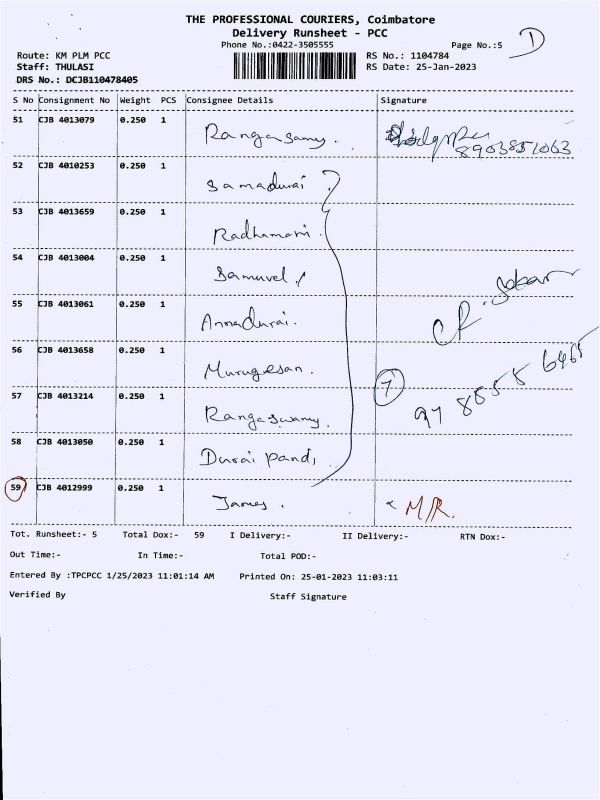 THE PROFESSIONAL COURIERS, Coimbatore
Delivery Runsheet - PCC
Phone No.:0422-3505555 Page No.:5 D
Route: KM PLM PCC RS No.: 1104784
Staff: THULASI RS Date: 25-Jan-2023
DRS No.: DCJB110478405
S No Consignment No Weight PCS Consignee Details Signature
51 CJB 4013079 0.250 1 Rangasamy. 8903851063
52 CJB 4010253 0.250 1 Samadurai
53 CJB 4013659 0.250 1 Radhamani.
54 CJB 4013004 0.250 1 Samuvel
55 CJB 4013061 0.250 1 Annadurai.
56 CJB 4013658 0.250 1 Murugesan.
57 CJB 4013214 0.250 1 Rangaswamy. 7
58 CJB 4013050 0.250 1 Durai Pandi
59 CJB 4012999 0.250 1 James. M/R.
Tot. Runsheet:- 5 Total Dox:- 59 I Delivery:- II Delivery:- RTN Dox:-
Out Time:- In Time:- Total POD:-
Entered By :TPCPCC 1/25/2023 11:01:14 AM Printed On: 25-01-2023 11:03:11
Verified By Staff Signature